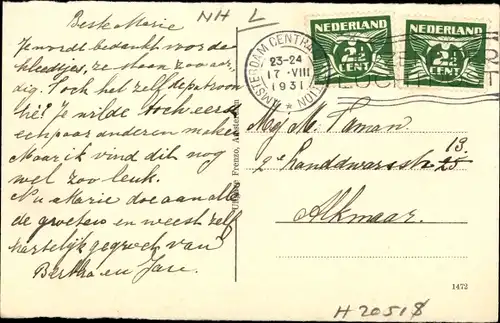 NH L
Beste Marie
Je wordt bedankt voor de
kleedtjes, ze staan zoo aar-
dig. Ook het zelfde patroon
hé! Je wilde toch eerst
echt paar anderen maken
Maar ik vind dit nog
wel zoo leuk.
Nu Marie doe aan alle
de groeten en weest zelf
hartelijk gegroet van
Bertha en Jase.
Uitgave Frenzo, Amsterdam
AMSTERDAM CENTRAAL STATION
23-24
17 · VIII
1931
NEDERLAND
2½
CENT
NEDERLAND
2½
CENT
Mej M.
13.
2e Landdwarsstr 25
Alkmaar.
1472
H 20518